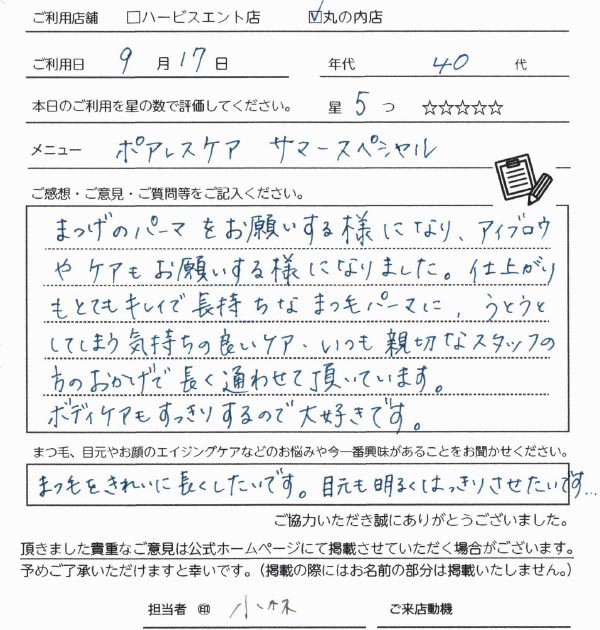 ご利用店舗 □ハービスエント店 ☑丸の内店
ご利用日 9 月 17 日 年代 40 代
本日のご利用を星の数で評価してください。 星 5 つ ☆☆☆☆☆
メニュー ポアレスケア サマースペシャル
ご感想・ご意見・ご質問等をご記入ください。
まつげのパーマをお願いする様になり、アイブロウ
やケアもお願いする様になりました。仕上がり
もとてもキレイで長持ちなまつ毛パーマに、うとうと
してしまう気持ちの良いケア、いつも親切なスタッフの
方のおかげで長く通わせて頂いています。
ボディケアもすっきりするので大好きです。
まつ毛、目元やお顔のエイジングケアなどのお悩みや今一番興味があることをお聞かせください。
まつ毛をきれいに長くしたいです。目元も明るくはっきりさせたいです...
ご協力いただき誠にありがとうございました。
頂きました貴重なご意見は公式ホームページにて掲載させていただく場合がございます。
予めご了承いただけますと幸いです。（掲載の際にはお名前の部分は掲載いたしません。）
担当者 ㊞ 小林 ご来店動機